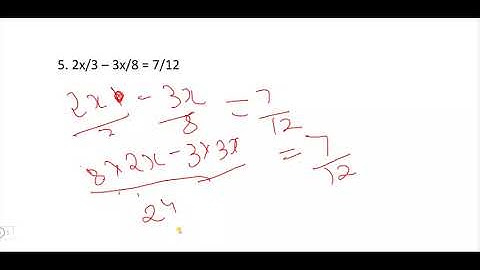 5. 2x/3 – 3x/8 = 7/12
2x/3 - 3x/8 = 7/12
8×2x - 3×3x / 24 = 7/12